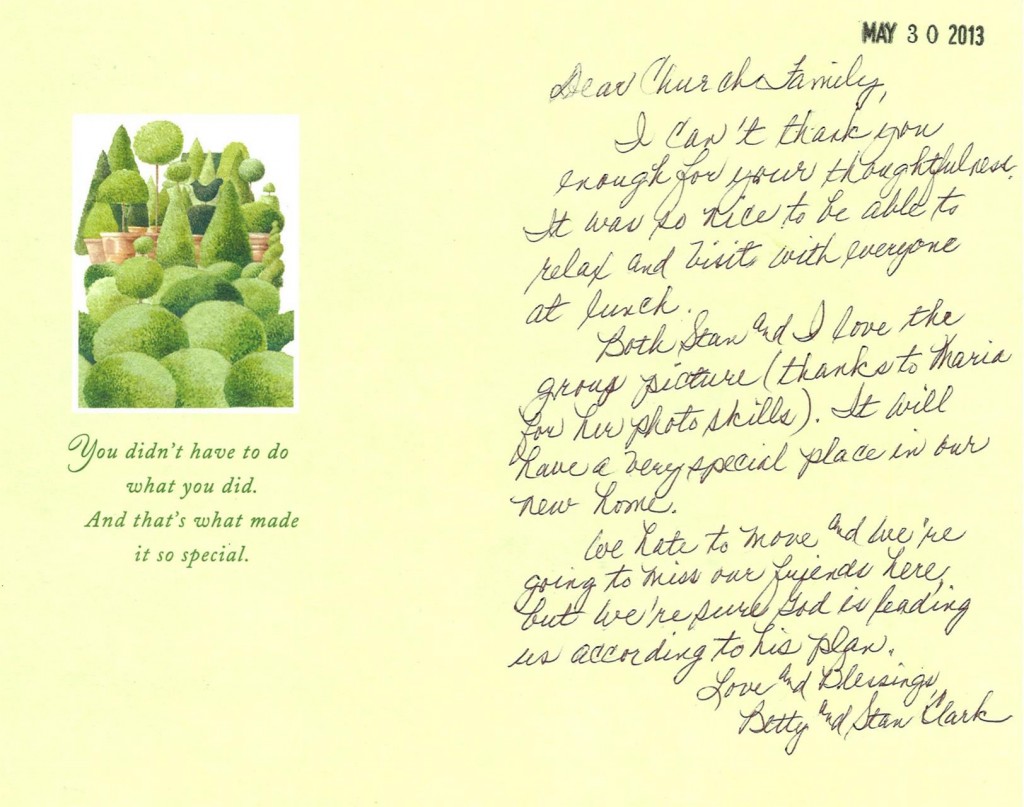 MAY 30 2013
You didn't have to do
what you did.
And that's what made
it so special.
Dear Church Family,
I can't thank you
enough for your thoughtfulness.
It was so nice to be able to
relax and visit with everyone
at lunch.
Both Stan and I love the
group picture (thanks to Maria
for her photo skills). It will
have a very special place in our
new home.
We hate to move and we're
going to miss our friends here,
but we're sure God is leading
us according to his plan.
Love and Blessings,
Betty and Stan Clark